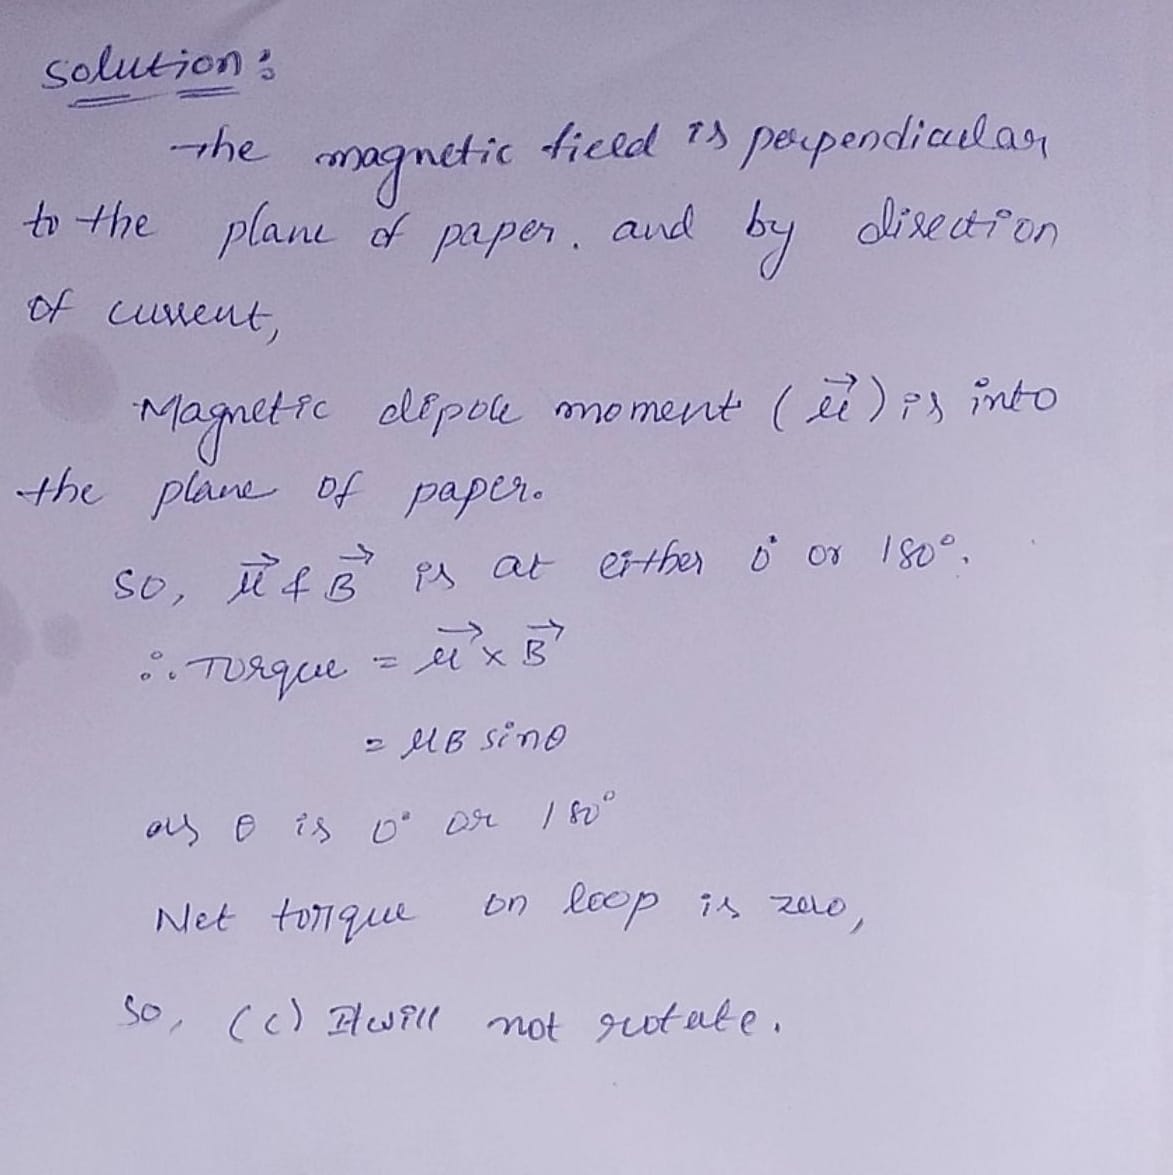 Solution:
The magnetic field is perpendicular
to the plane of paper. and by direction
of current,
Magnetic dipole moment (μ⃗) is into
the plane of paper.
So, μ⃗ & B⃗ is at either 0° or 180°.
∴ Torque = μ⃗ × B⃗
= μB sinθ
as θ is 0° or 180°
Net torque on loop is zero,
So, (c) It will not rotate.